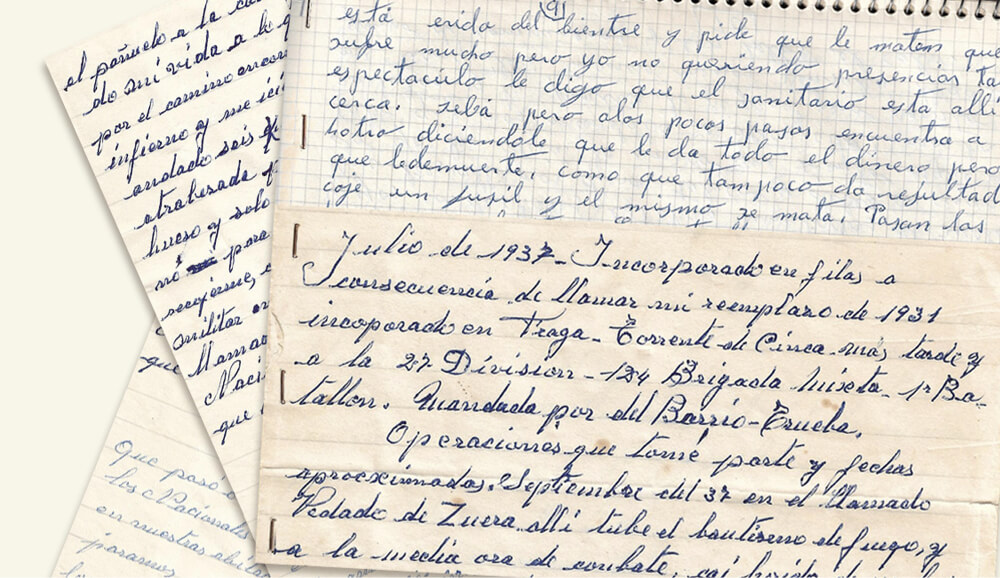 el pañuelo a la
do mi vida a lo
por el camino
infierno y me
andado seis
atrabesada
hueso y solo
nó para
recojerme,
militar
Llamad
Naci
que
que
Que paso
los Nacionales
en nuestras
paramos
9
está erido del bientre y pide que le maten que
sufre mucho pero yo no queriendo presenciar tal
espectaculo le digo que el sanitario esta alli
cerca. sebá pero alos pocos pasos encuentra a
hotro diciendole que le da todo el dinero pero
que ledemuerte, como que tampoco da resultad
coje un fusil y el mismo se mata. Pasan las
Julio de 1937 - Incorporado en filas a
consecuencia de llamar mi reemplazo de 1931
incoporado en Fraga - Torrente de Cinca más tarde y
a la 27 Division - 124 Brigada Mixta - 1º Ba-
tallon. Mandada por del Barrio - Trueba.
Operaciones que tomé parte y fechas
aprocximadas. Septiembre del 37 en el llamado
Vedado de Zuera alli tube el bautismo de fuego, y
a la media ora de conbate, caí herido de